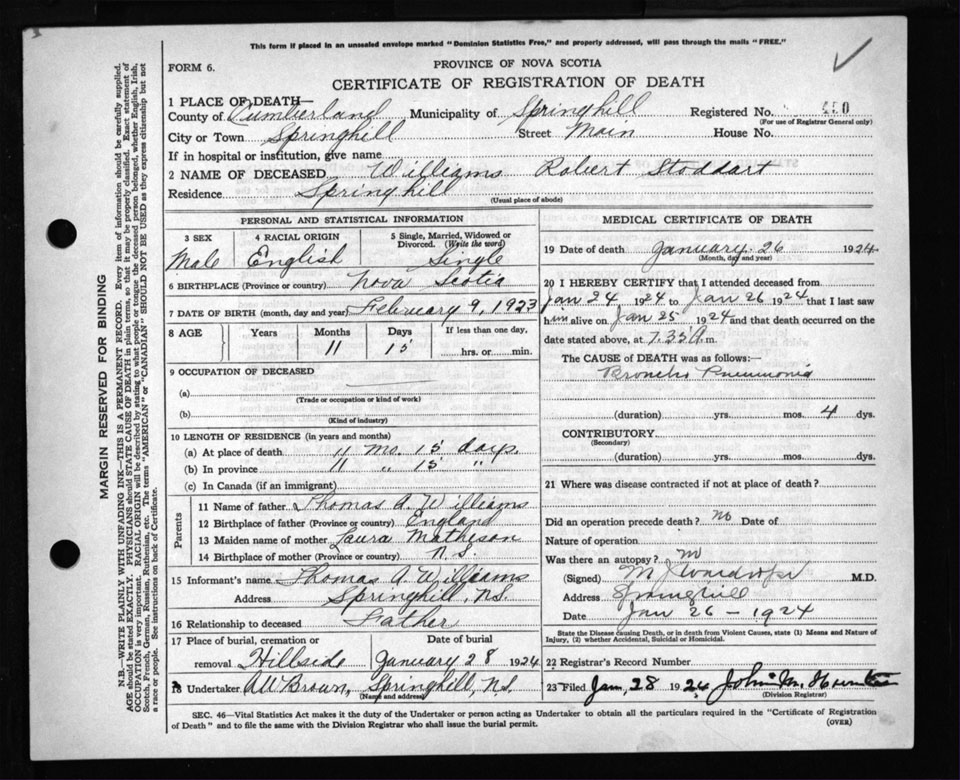 This form if placed in an unsealed envelope marked "Dominion Statistics Free," and properly addressed, will pass through the mails "FREE."
FORM 6.
PROVINCE OF NOVA SCOTIA
CERTIFICATE OF REGISTRATION OF DEATH
1 PLACE OF DEATH—
County of Cumberland Municipality of Springhill Registered No. 450
(For use of Registrar General only)
City or Town Springhill Street Main House No.
If in hospital or institution, give name
2 NAME OF DECEASED Williams Robert Stoddart
Residence Springhill
(Usual place of abode)
PERSONAL AND STATISTICAL INFORMATION
3 SEX 4 RACIAL ORIGIN 5 Single, Married, Widowed or Divorced. (Write the word)
Male English Single
6 BIRTHPLACE (Province or country) Nova Scotia
7 DATE OF BIRTH (month, day and year) February 9, 1923
8 AGE Years Months Days If less than one day,
11 15 hrs. or min.
9 OCCUPATION OF DECEASED
(a)
(Trade or occupation or kind of work)
(b)
(Kind of industry)
10 LENGTH OF RESIDENCE (in years and months)
(a) At place of death 11 mo. 15 days.
(b) In province 11 " 15 "
(c) In Canada (if an immigrant)
Parents
11 Name of father Thomas A. Williams
12 Birthplace of father (Province or country) England
13 Maiden name of mother Laura Matheson
14 Birthplace of mother (Province or country) N.S.
15 Informant's name Thomas A. Williams
Address Springhill, N.S.
16 Relationship to deceased Father
17 Place of burial, cremation or removal Hillside
Date of burial January 28 1924
18 Undertaker A W Brown, Springhill, N.S.
(Name and address)
MEDICAL CERTIFICATE OF DEATH
19 Date of death January 26 1924
(Month, day and year)
20 I HEREBY CERTIFY that I attended deceased from
Jan 24 1924 to Jan 26 1924 that I last saw
him alive on Jan 25 1924 and that death occurred on the
date stated above, at 7.35 A. m.
The CAUSE of DEATH was as follows:
Broncho Pneumonia
(duration) yrs. mos. 4 dys.
CONTRIBUTORY
(Secondary)
(duration) yrs. mos. dys.
21 Where was disease contracted if not at place of death?
Did an operation precede death? no Date of
Nature of operation
Was there an autopsy? no
(Signed) M.D.
Address Springhill
Date Jan 26 - 1924
State the Disease causing Death, or in death from Violent Causes, state (1) Means and Nature of
Injury, (2) whether Accidental, Suicidal or Homicidal.
22 Registrar's Record Number
23 Filed Jan, 28 1924 John M. Hunter
(Division Registrar)
SEC. 46—Vital Statistics Act makes it the duty of the Undertaker or person acting as Undertaker to obtain all the particulars required in the "Certificate of Registration
of Death" and to file the same with the Division Registrar who shall issue the burial permit.
(OVER)
MARGIN RESERVED FOR BINDING
N.B.—WRITE PLAINLY WITH UNFADING INK—THIS IS A PERMANENT RECORD. Every item of information should be carefully supplied.
AGE should be stated EXACTLY. PHYSICIANS should STATE CAUSE OF DEATH in plain terms, so that it may be properly classified. Exact statement of
OCCUPATION is very important. RACIAL ORIGIN will be described by stating to what people or tongue the deceased person belonged, whether English, Irish,
Scotch, French, German, Russian, Ruthenian, etc. The terms "AMERICAN" or "CANADIAN" SHOULD NOT BE USED as they express citizenship but not
a race or people. See instructions on back of Certificate.